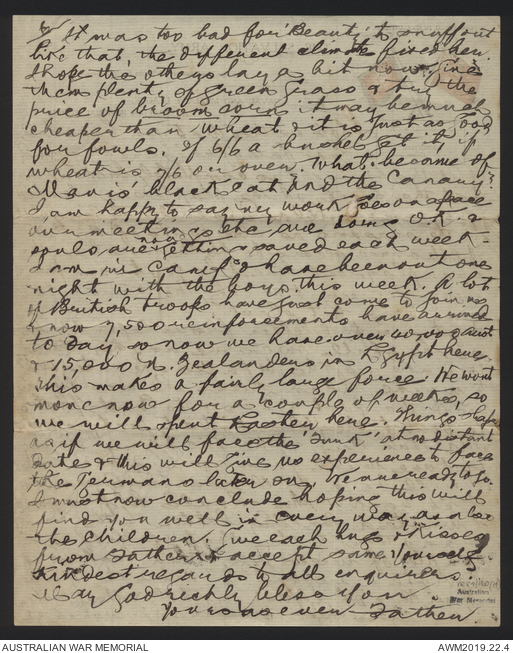 It was too bad for 'Beauty' to snuff out
like that, the different climate fixed her.
I hope the others lay a bit now. Give
them plenty of green grass & try the
price of broom corn it may be much
cheaper than wheat & it is just as good
for fowls. If 6/6 a bushel get it, if
wheat is 7/6 or over. What become of
Mavis' black cat and the Canary?
I am happy to say my work goes on apace
our meetings etc are going O.K. &
souls are getting saved each week.
I am in Camp & have been out one
night with the boys this week. A lot
of British troops have just come to join us
& now 7,500 reinforcements have arrived
to day so now we have over 40,000 Aust
& 15,000 N. Zealanders in Egypt here.
This makes a fairly large force. We wont
move now for a couple of weeks, so
we will spend Easter here. Things look
as if we will face the 'Turk' at no distant
date & this will give us experience to face
the Germans later on. We are ready to go.
I must now conclude hoping this will
find you well in every way, as also
the children. Give each hugs & kisses
from Father & accept same yourself.
Kindest regards to all enquirers.
May God richly bless you.
Yours as ever Father
Australian
War Memorial
AUSTRALIAN WAR MEMORIAL
AWM2019.22.4